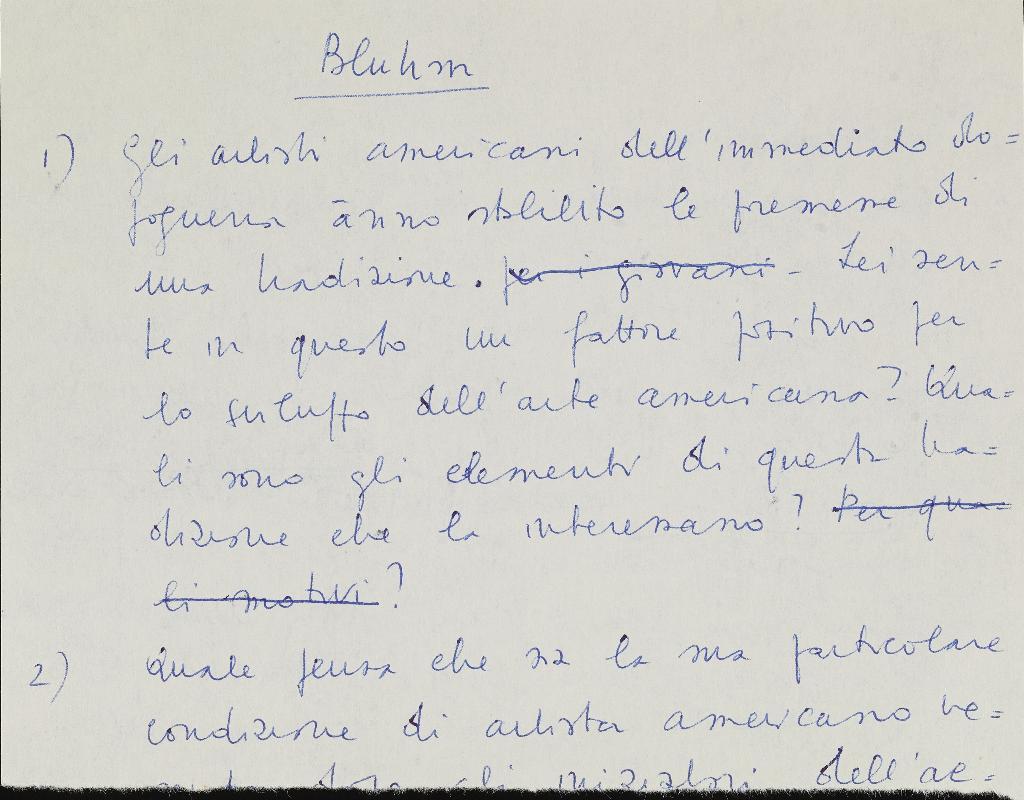 Bluhm
1) Gli artisti americani dell'immediato do=
poguerra ànno stabilito le premesse di
una tradizione. per i giovani - Lei sen=
te in questo un fattore positivo per
lo sviluppo dell'arte americana? Qua=
li sono gli elementi di questa tra=
dizione che la interessano? Per qua=
li motivi?
2) Quale pensa che sia la sua particolare
condizione di artista americano ve=
dopo gli iniziatori dell'ac=